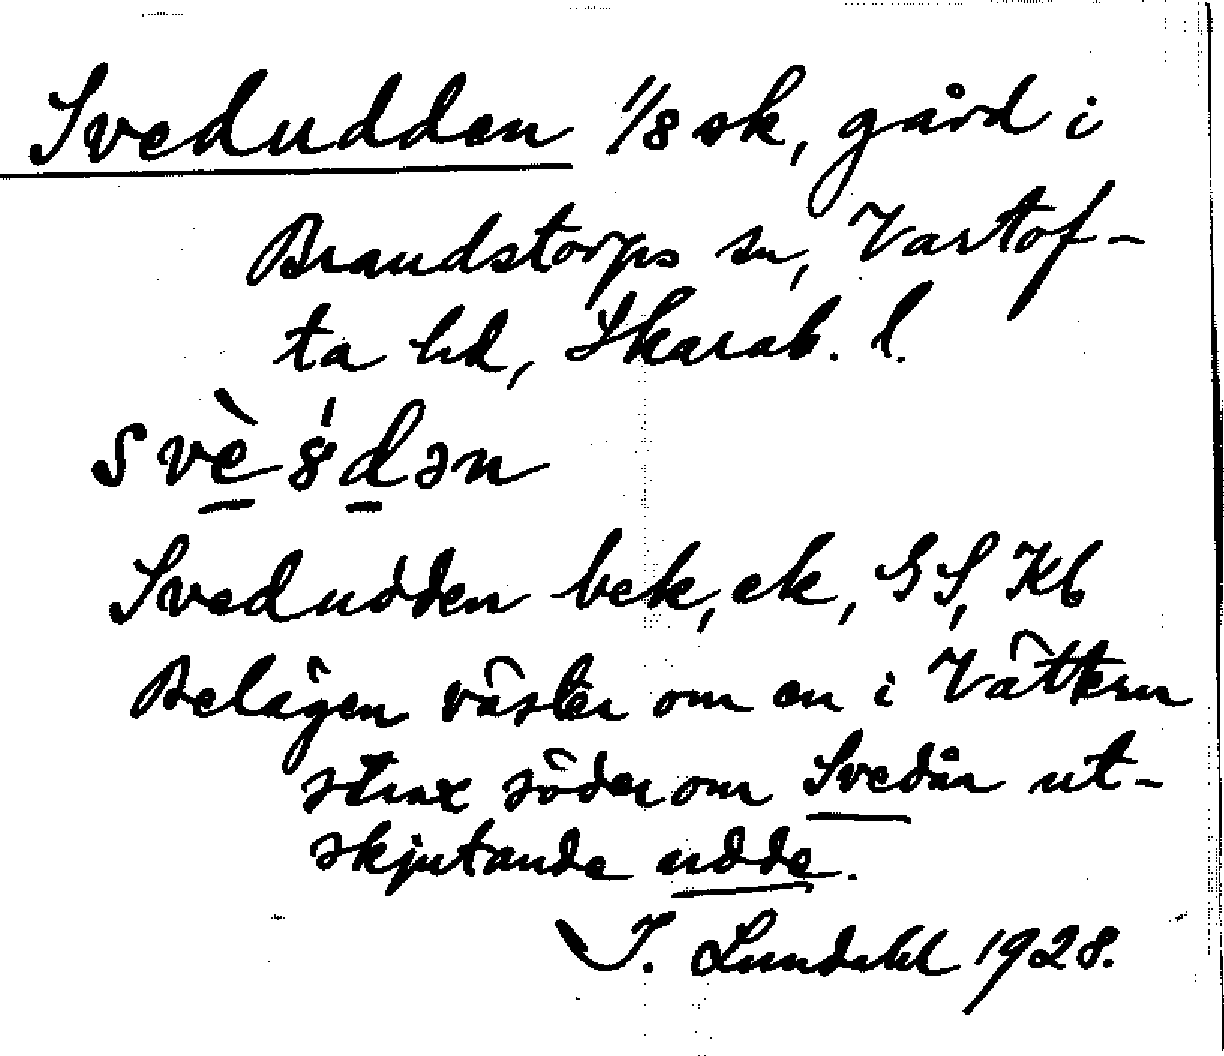 Svedudden 1/8 sk, gård i
Brandstorps sn, Vartof-
ta hd, Skarab. l.
svè8dən
Svedudden bek, ek, GS, Kb
Belägen väster om en i Vättern
strax söder om Svedån ut-
skjutande udde.
I. Lundahl 1928.